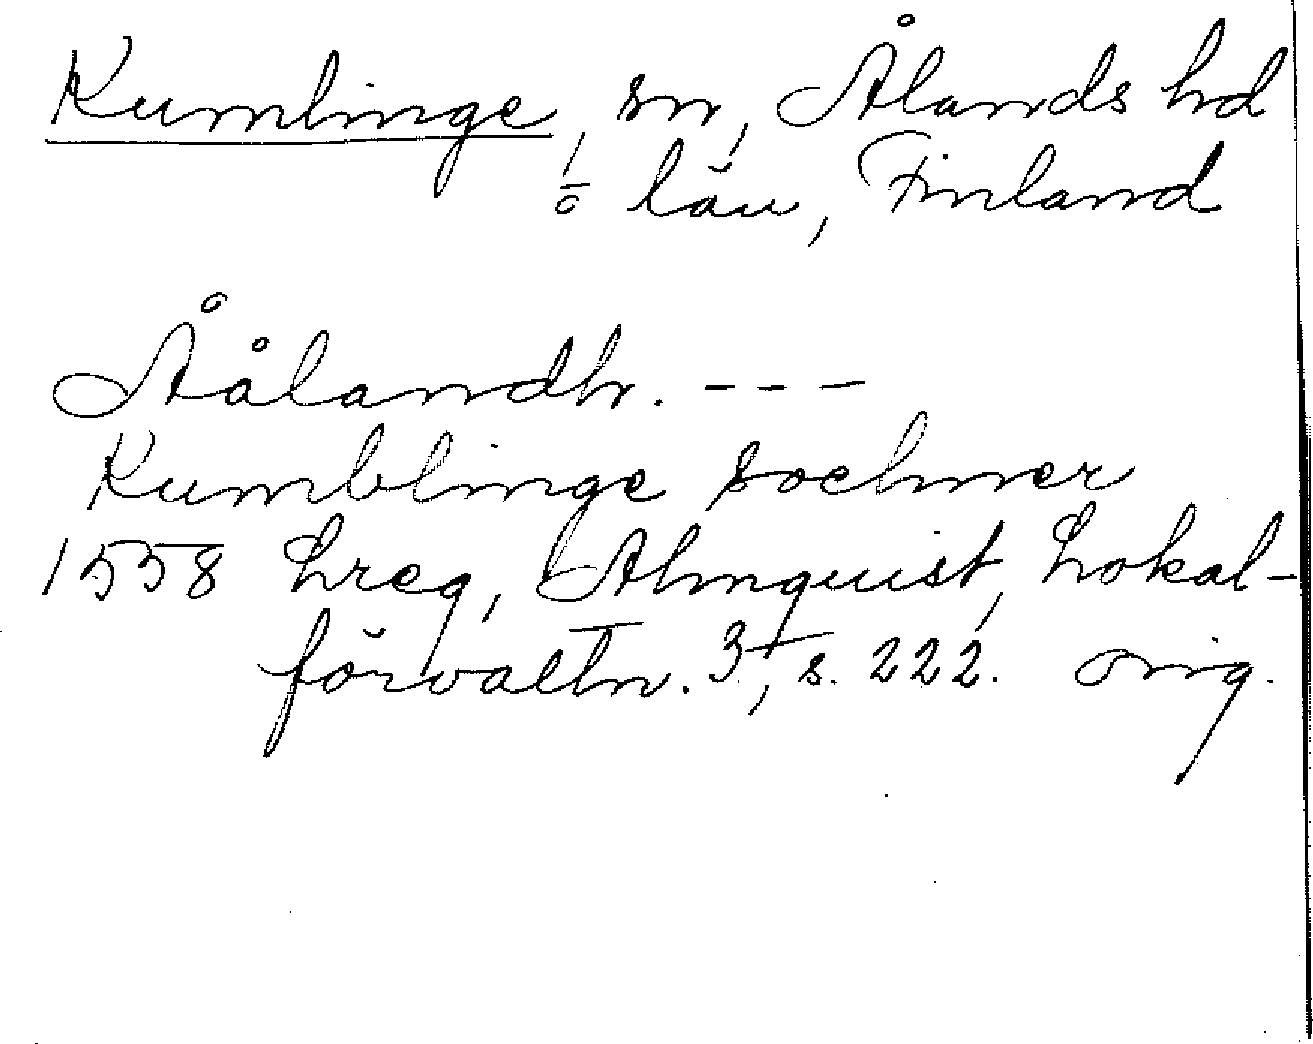 Kumlinge, sn, Ålands hd
o län, Finland
Åålandh. ---
Kumblinge sochner
1558 Lreg, Almquist, Lokal-
förvaltn. 3, s. 222. orig.